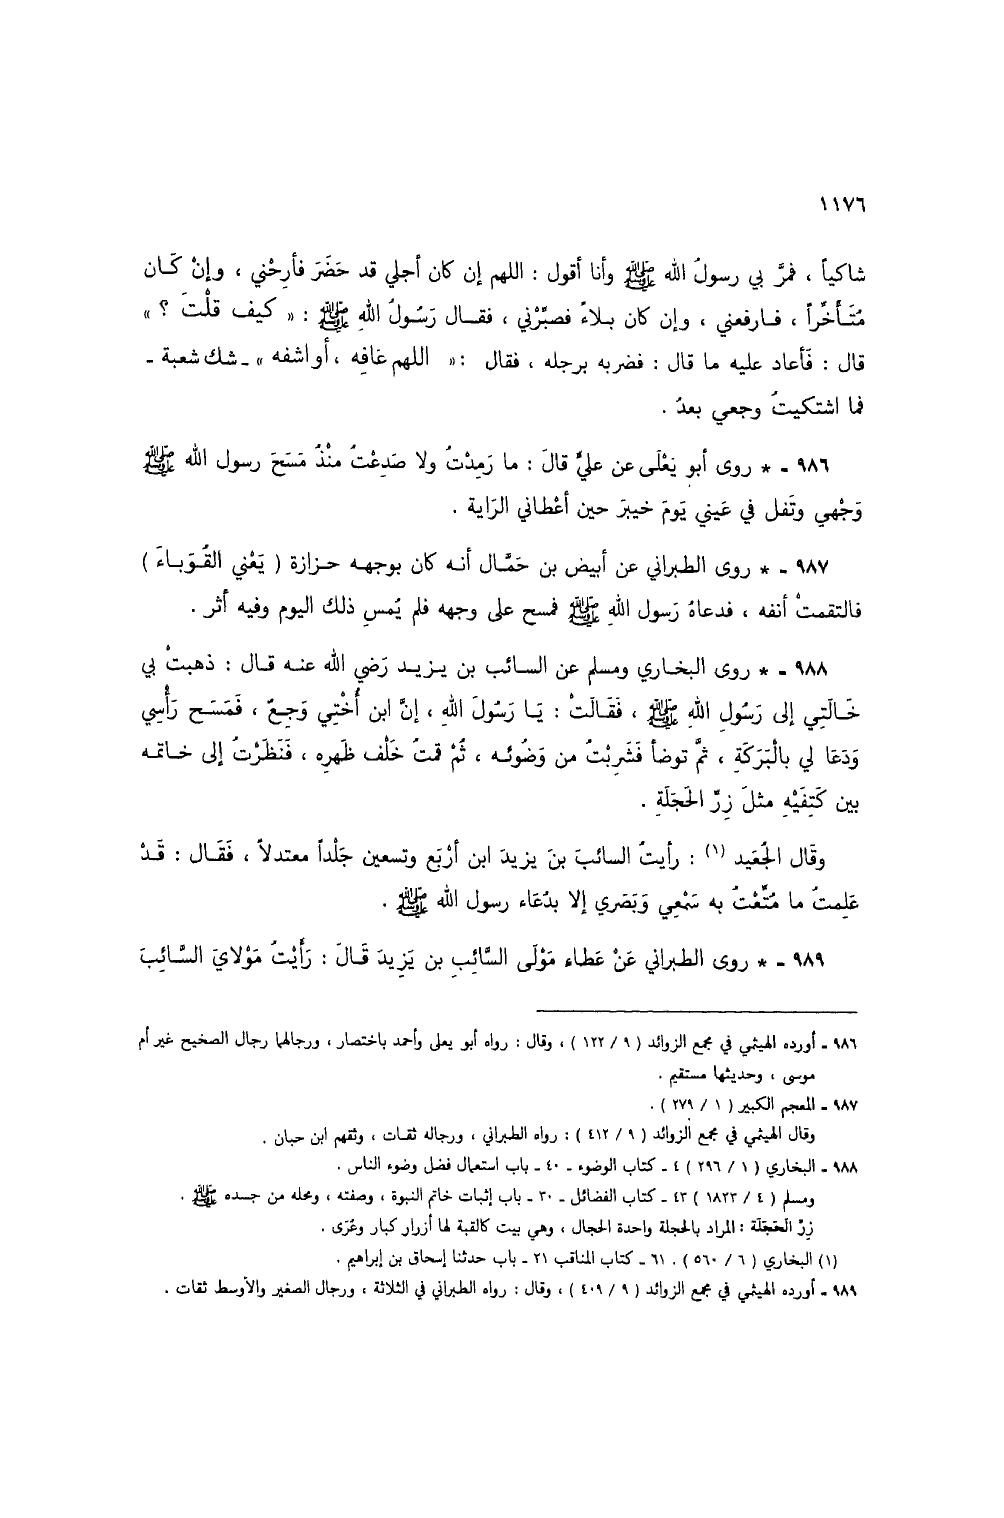 ١١٧٦
شاكياً ، فمرَّ بي رسولُ الله ﷺ وأنا أقول : اللهم إن كان أجلي قد حَضَرَ فأرِحْني ، وإنْ كَـان
مُتَـأَخِّراً ، فـارفعني ، وإن كان بـلاءً فصبِّرْني ، فقـال رَسُولُ اللهِ ﷺ : « كيف قلْتَ ؟ »
قال : فَأعاد عليه ما قال : فضربه برجله ، فقال : « اللهم عَافِه ، أو اشفه » ـ شك شعبة ـ
فما اشتكيتُ وجعي بعدُ .
٩٨٦ ـ * روى أبو يَعْلَى عن عليٍّ قالَ : ما رَمِدْتُ ولا صَدِعْتُ منْذُ مَسَحَ رسول الله ﷺ
وَجْهي وتَفل في عَيني يَومَ خيبرَ حين أعْطاني الرَاية .
٩٨٧ ـ * روى الطبراني عن أبيض بن حَمَّال أنـه كان بوجهـه حـزازة ( يَعْني القُـوَبـاءَ )
فالتقمتْ أنفه ، فدعاهُ رَسول اللهِ ﷺ فمسح على وجهه فلم يُمسِ ذلك اليوم وفيه أثر .
٩٨٨ ـ * روى البخـاري ومسلم عن السـائب بن يـزيـد رَضي الله عنـه قـال : ذهبتْ بي
خَـالَتِي إلى رَسُولِ اللهِ ﷺ ، فَقَـالَتْ : يَـا رَسُولَ اللهِ ، إنَّ ابن أُخْتِي وَجِـعٌ ، فَمَسَـح رَأْسِي
وَدَعَا لي بالْبَرَكَةِ ، ثمَّ توضأ فَشَرِبْتُ من وَضُوئـه ، ثُمْ قمتُ خَلْف ظَهرِه ، فَنَظَرْتُ إلى خـاتمـه
بين كَتِفَيْهِ مثلَ زِرِّ الحَجَلَةِ .
وقَال الجُعَيد (١) : رأيتُ السائبَ بنَ يزيدَ ابن أرْبَع وتسعين جَلْداً معتدلاً ، فَقَـال : قَـدْ
عَلِمتُ ما مُتِّعْتُ به سَمْعِي وَبَصَري إلا بدُعَاء رسول الله ﷺ .
٩٨٩ ـ * روى الطبراني عَنْ عَطاء مَوْلَى السَّائِبِ بن يَزيدَ قَـالَ : رَأَيْتُ مَوْلايَ السَّـائِبَ
٩٨٦ ـ أورده الهيثمي في مجمع الزوائد ( ٩ / ١٢٢ ) ، وقال : رواه أبو يعلى وأحمد باختصار ، ورجالهما رجال الصحيح غير أم
موسى ، وحديثها مستقيم .
٩٨٧ ـ المعجم الكبير ( ١ / ٢٧٩ ) .
وقال الهيثمي في مجمع الزوائد ( ٩ / ٤١٢ ) : رواه الطبراني ، ورجاله ثقـات ، وثقهم ابن حبان .
٩٨٨ ـ البخاري ( ١ / ٢٩٦ ) ٤ ـ كتاب الوضوء ـ ٤٠ ـ باب استعمال فضل وضوء الناس .
ومسلم ( ٤ / ١٨٢٣ ) ٤٣ ـ كتاب الفضائل ـ ٣٠ ـ باب إثبات خاتم النبوة ، وصفته ، ومحله من جسده ﷺ .
زِرّ الحَجَلَة : المراد بالحجلة واحدة الحجال ، وهي بيت كالقبة لها أزرار كبار وعُرَى .
(١) البخاري ( ٦ / ٥٦٠ ) . ٦١ ـ كتاب المناقب ٢١ ـ باب حدثنا إسحاق بن إبراهيم .
٩٨٩ ـ أورده الهيثمي في مجمع الزوائد ( ٩ / ٤٠٩ ) ، وقال : رواه الطبراني في الثلاثة ، ورجال الصغير والأوسط ثقات .